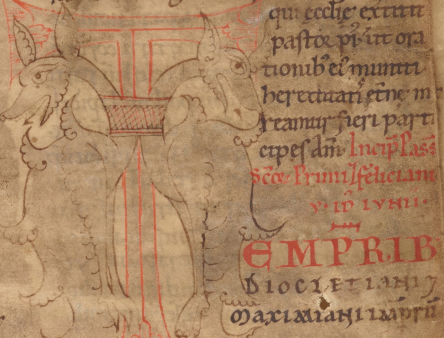 qui eccl̅ie extitit
pastor pi᷒ ut ora
tionib᷒ ei᷒ muniti
hereditatis
reamur fieri parti
cipes
Incip̅ Pas̅s̅
Primi & feliciani
v· id̅ iunii·
EMPRIB
DIOCLETIANI
MAXIMIANI